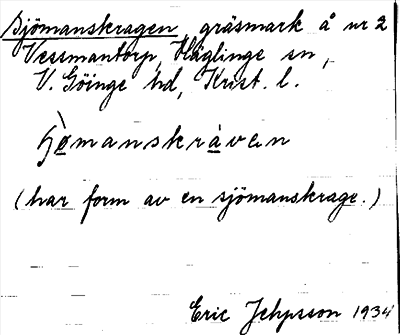 Sjömanskragen gräsmark å nr 2
Vessmantorp, Häglinge sn,
V. Göinge hd, Krist. l.
ɧò̱manskrà̱ven
(har form av en sjömanskrage.)
Eric Jehpsson 1934